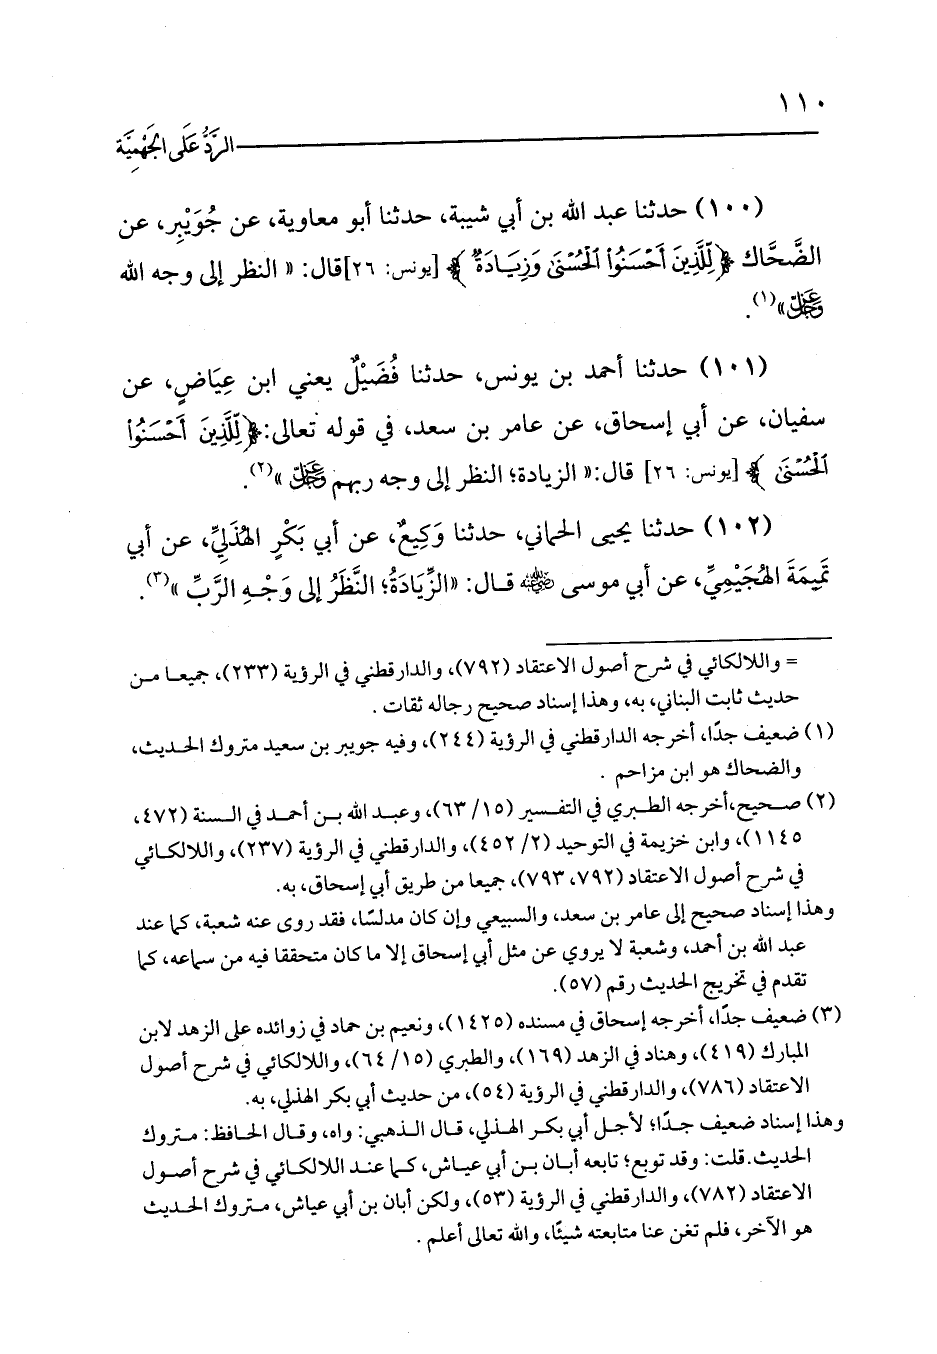 ١١٠
الرَّدُّ عَلَى الجَهْمِيَّة
(١٠٠) حدثنا عبد الله بن أبي شيبة، حدثنا أبو معاوية، عن جُوَيْبِر، عن
الضَّحَّاك ﴿لِّلَّذِينَ أَحْسَنُوا۟ الْحُسْنَىٰ وَزِيَادَةٌ﴾ [يونس: ٢٦]قال: « النظر إلى وجه الله
عز وجل»(١).
(١٠١) حدثنا أحمد بن يونس، حدثنا فُضَيْلٌ يعني ابن عِيَاضٍ، عن
سفيان، عن أبي إسحاق، عن عامر بن سعد، في قوله تعالى:﴿لِّلَّذِينَ أَحْسَنُوا۟
الْحُسْنَىٰ﴾ [يونس: ٢٦] قال:« الزيادة؛ النظر إلى وجه ربهم عز وجل »(٢).
(١٠٢) حدثنا يحيى الحماني، حدثنا وَكِيعٌ، عن أبي بَكْرٍ الهُذَلِيِّ، عن أبي
تَمِيمَةَ الهُجَيْمِيِّ، عن أبي موسى رضي الله عنه قال: «الزِّيَادَةُ؛ النَّظَرُ إلى وَجْهِ الرَّبِّ »(٣).
= واللالكائي في شرح أصول الاعتقاد (٧٩٢)، والدارقطني في الرؤية (٢٣٣)، جميعا من
حديث ثابت البناني، به، وهذا إسناد صحيح رجاله ثقات .
(١) ضعيف جدًا، أخرجه الدارقطني في الرؤية (٢٤٤)، وفيه جويبر بن سعيد متروك الحديث،
والضحاك هو ابن مزاحم .
(٢) صحيح،أخرجه الطبري في التفسير (١٥/ ٦٣)، وعبد الله بن أحمد في السنة (٤٧٢،
١١٤٥)، وابن خزيمة في التوحيد (٢/ ٤٥٢)، والدارقطني في الرؤية (٢٣٧)، واللالكائي
في شرح أصول الاعتقاد (٧٩٢، ٧٩٣)، جميعا من طريق أبي إسحاق، به.
وهذا إسناد صحيح إلى عامر بن سعد، والسبيعي وإن كان مدلسًا، فقد روى عنه شعبة، كما عند
عبد الله بن أحمد، وشعبة لا يروي عن مثل أبي إسحاق إلا ما كان متحققا فيه من سماعه، كما
تقدم في تخريج الحديث رقم (٥٧).
(٣) ضعيف جدًا، أخرجه إسحاق في مسنده (١٤٢٥)، ونعيم بن حماد في زوائده على الزهد لابن
المبارك (٤١٩)، وهناد في الزهد (١٦٩)، والطبري (١٥/ ٦٤)، واللالكائي في شرح أصول
الاعتقاد (٧٨٦)، والدارقطني في الرؤية (٥٤)، من حديث أبي بكر الهذلي، به.
وهذا إسناد ضعيف جدًا؛ لأجل أبي بكر الهذلي، قال الذهبي: واه، وقال الحافظ: متروك
الحديث.قلت: وقد توبع؛ تابعه أبان بن أبي عياش، كما عند اللالكائي في شرح أصول
الاعتقاد (٧٨٢)، والدارقطني في الرؤية (٥٣)، ولكن أبان بن أبي عياش، متروك الحديث
هو الآخر، فلم تغن عنا متابعته شيئًا، والله تعالى أعلم .